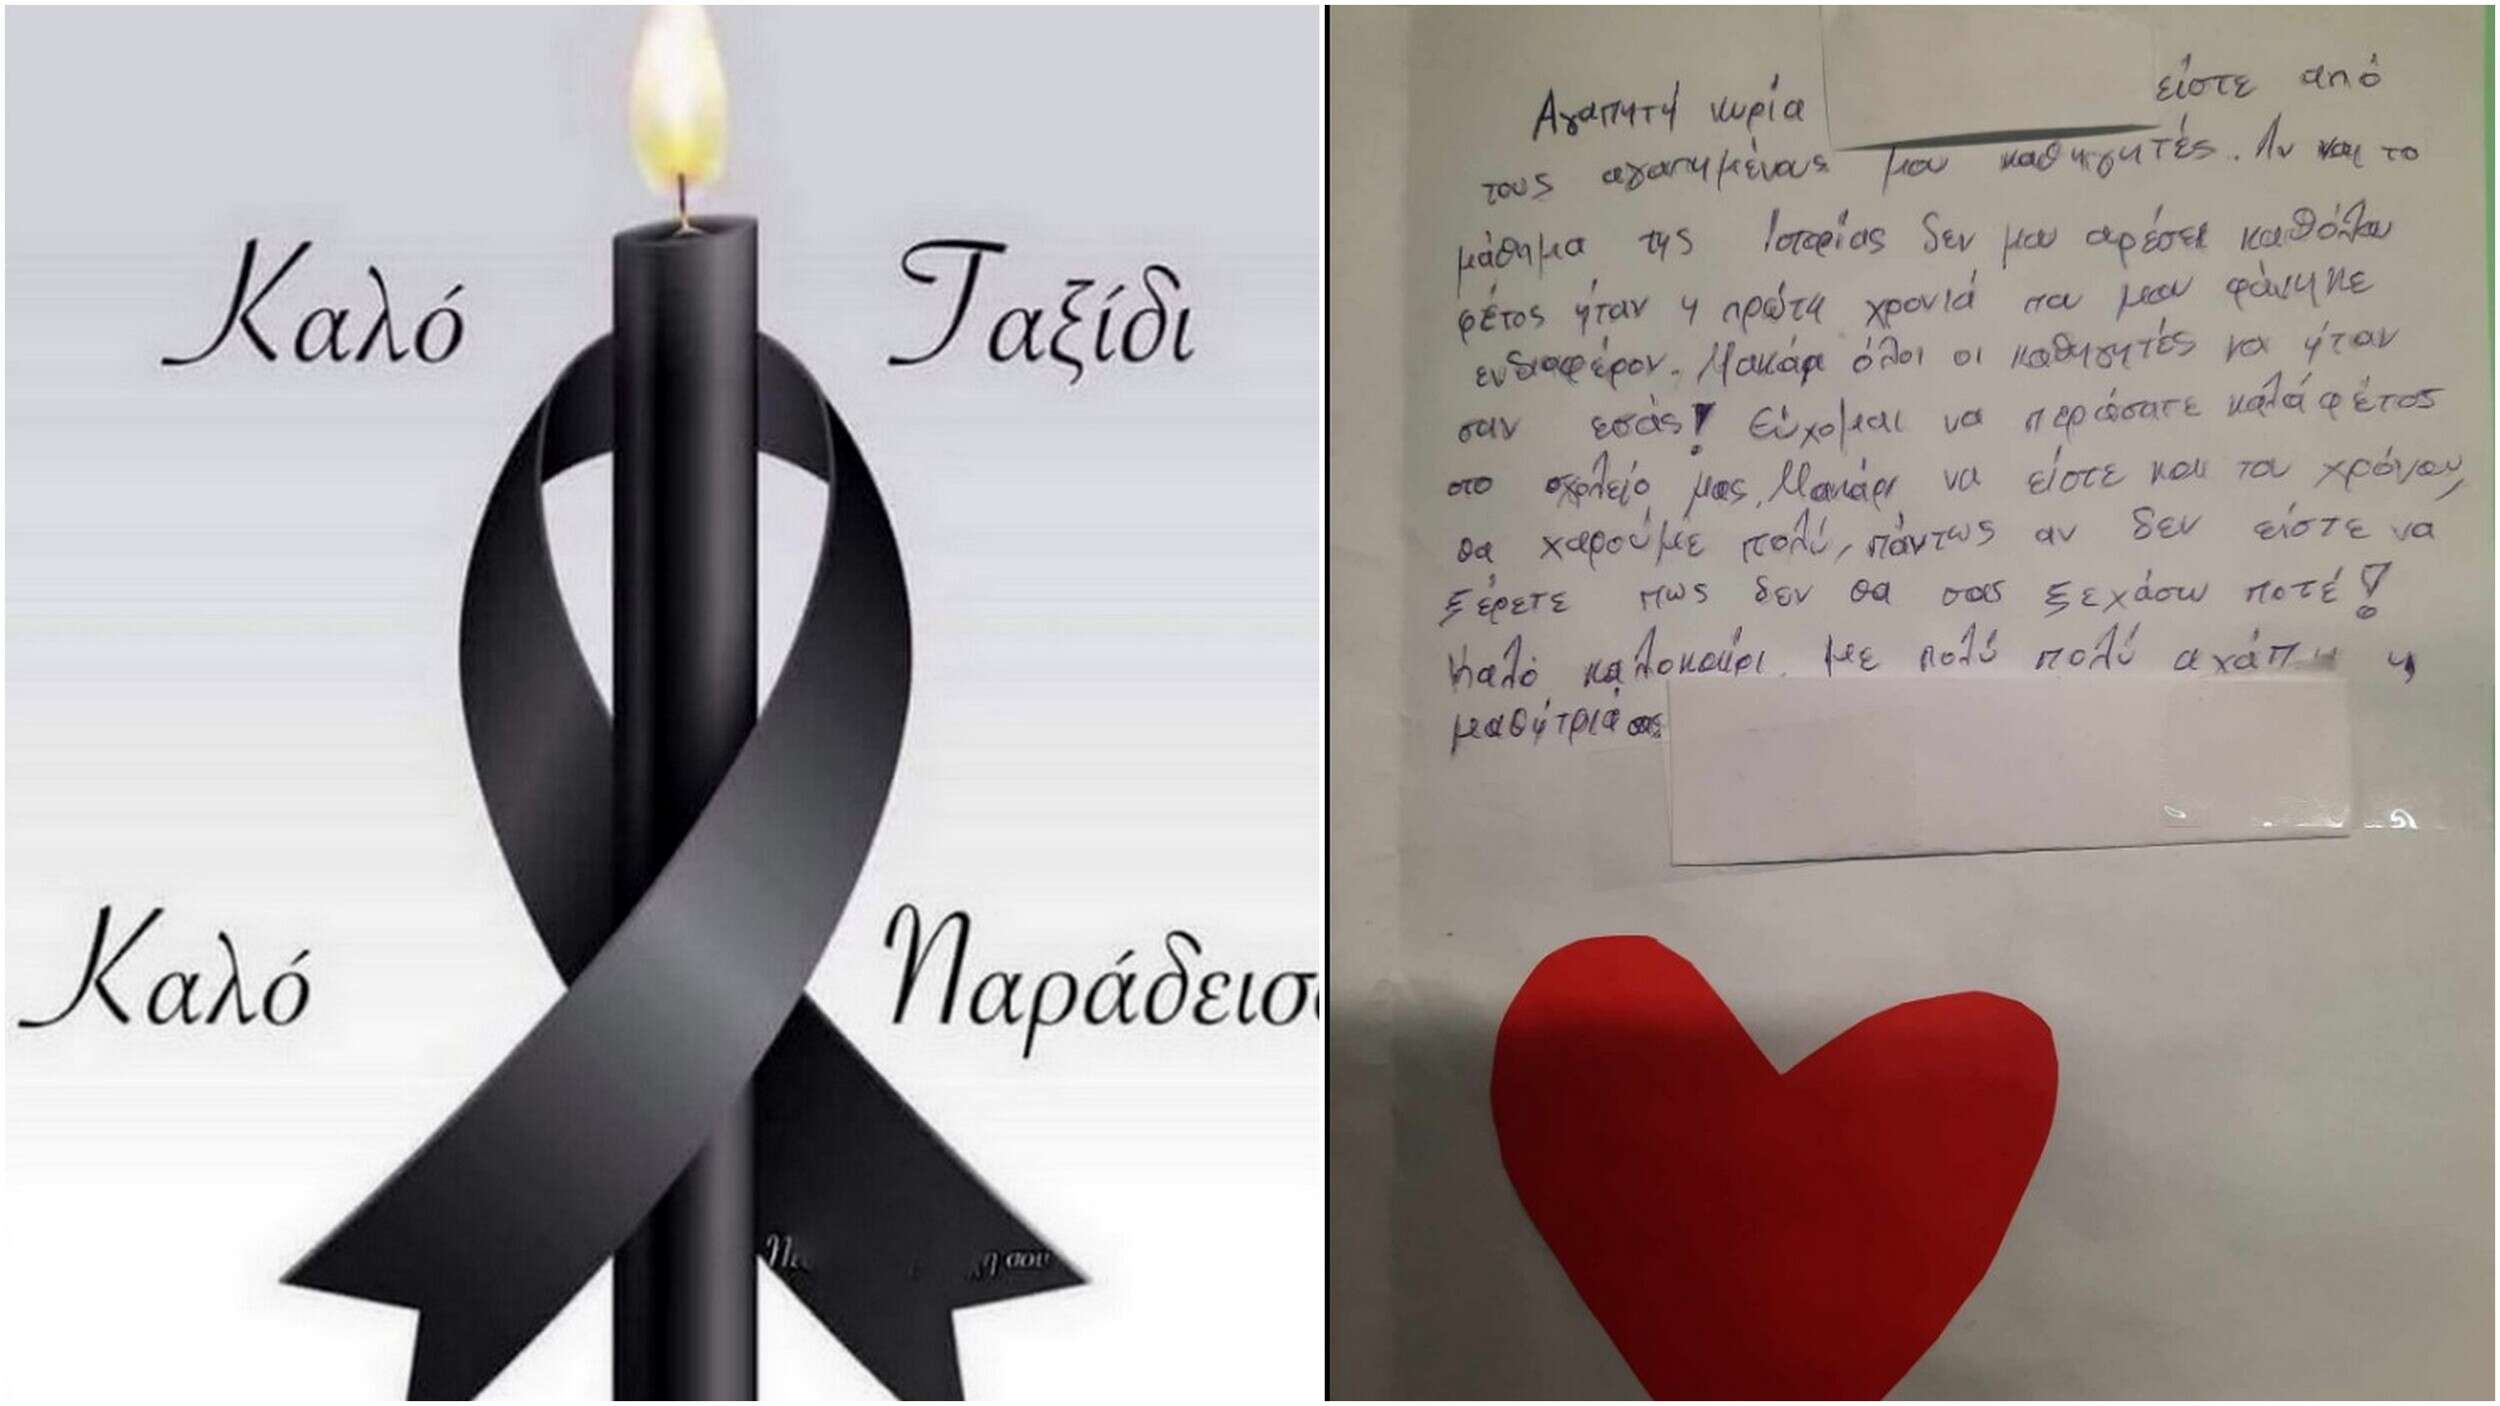 Καλό Ταξίδι
Καλό Παράδεισο
η σου
Αγαπητή κυρία είστε από
τους αγαπημένους μου καθηγητές. Αν και το
μάθημα της Ιστορίας δεν μου αρέσει καθόλου
φέτος ήταν η πρώτη χρονιά που μου φάνηκε
ενδιαφέρον. Μακάρι όλοι οι καθηγητές να ήταν
σαν εσάς! Εύχομαι να περάσατε καλά φέτος
στο σχολείο μας. Μακάρι να είστε και του χρόνου,
θα χαρούμε πολύ, πάντως αν δεν είστε να
ξέρετε πως δεν θα σας ξεχάσω ποτέ!
Καλό καλοκαίρι. Με πολύ πολύ αγάπη η
μαθήτριά σας